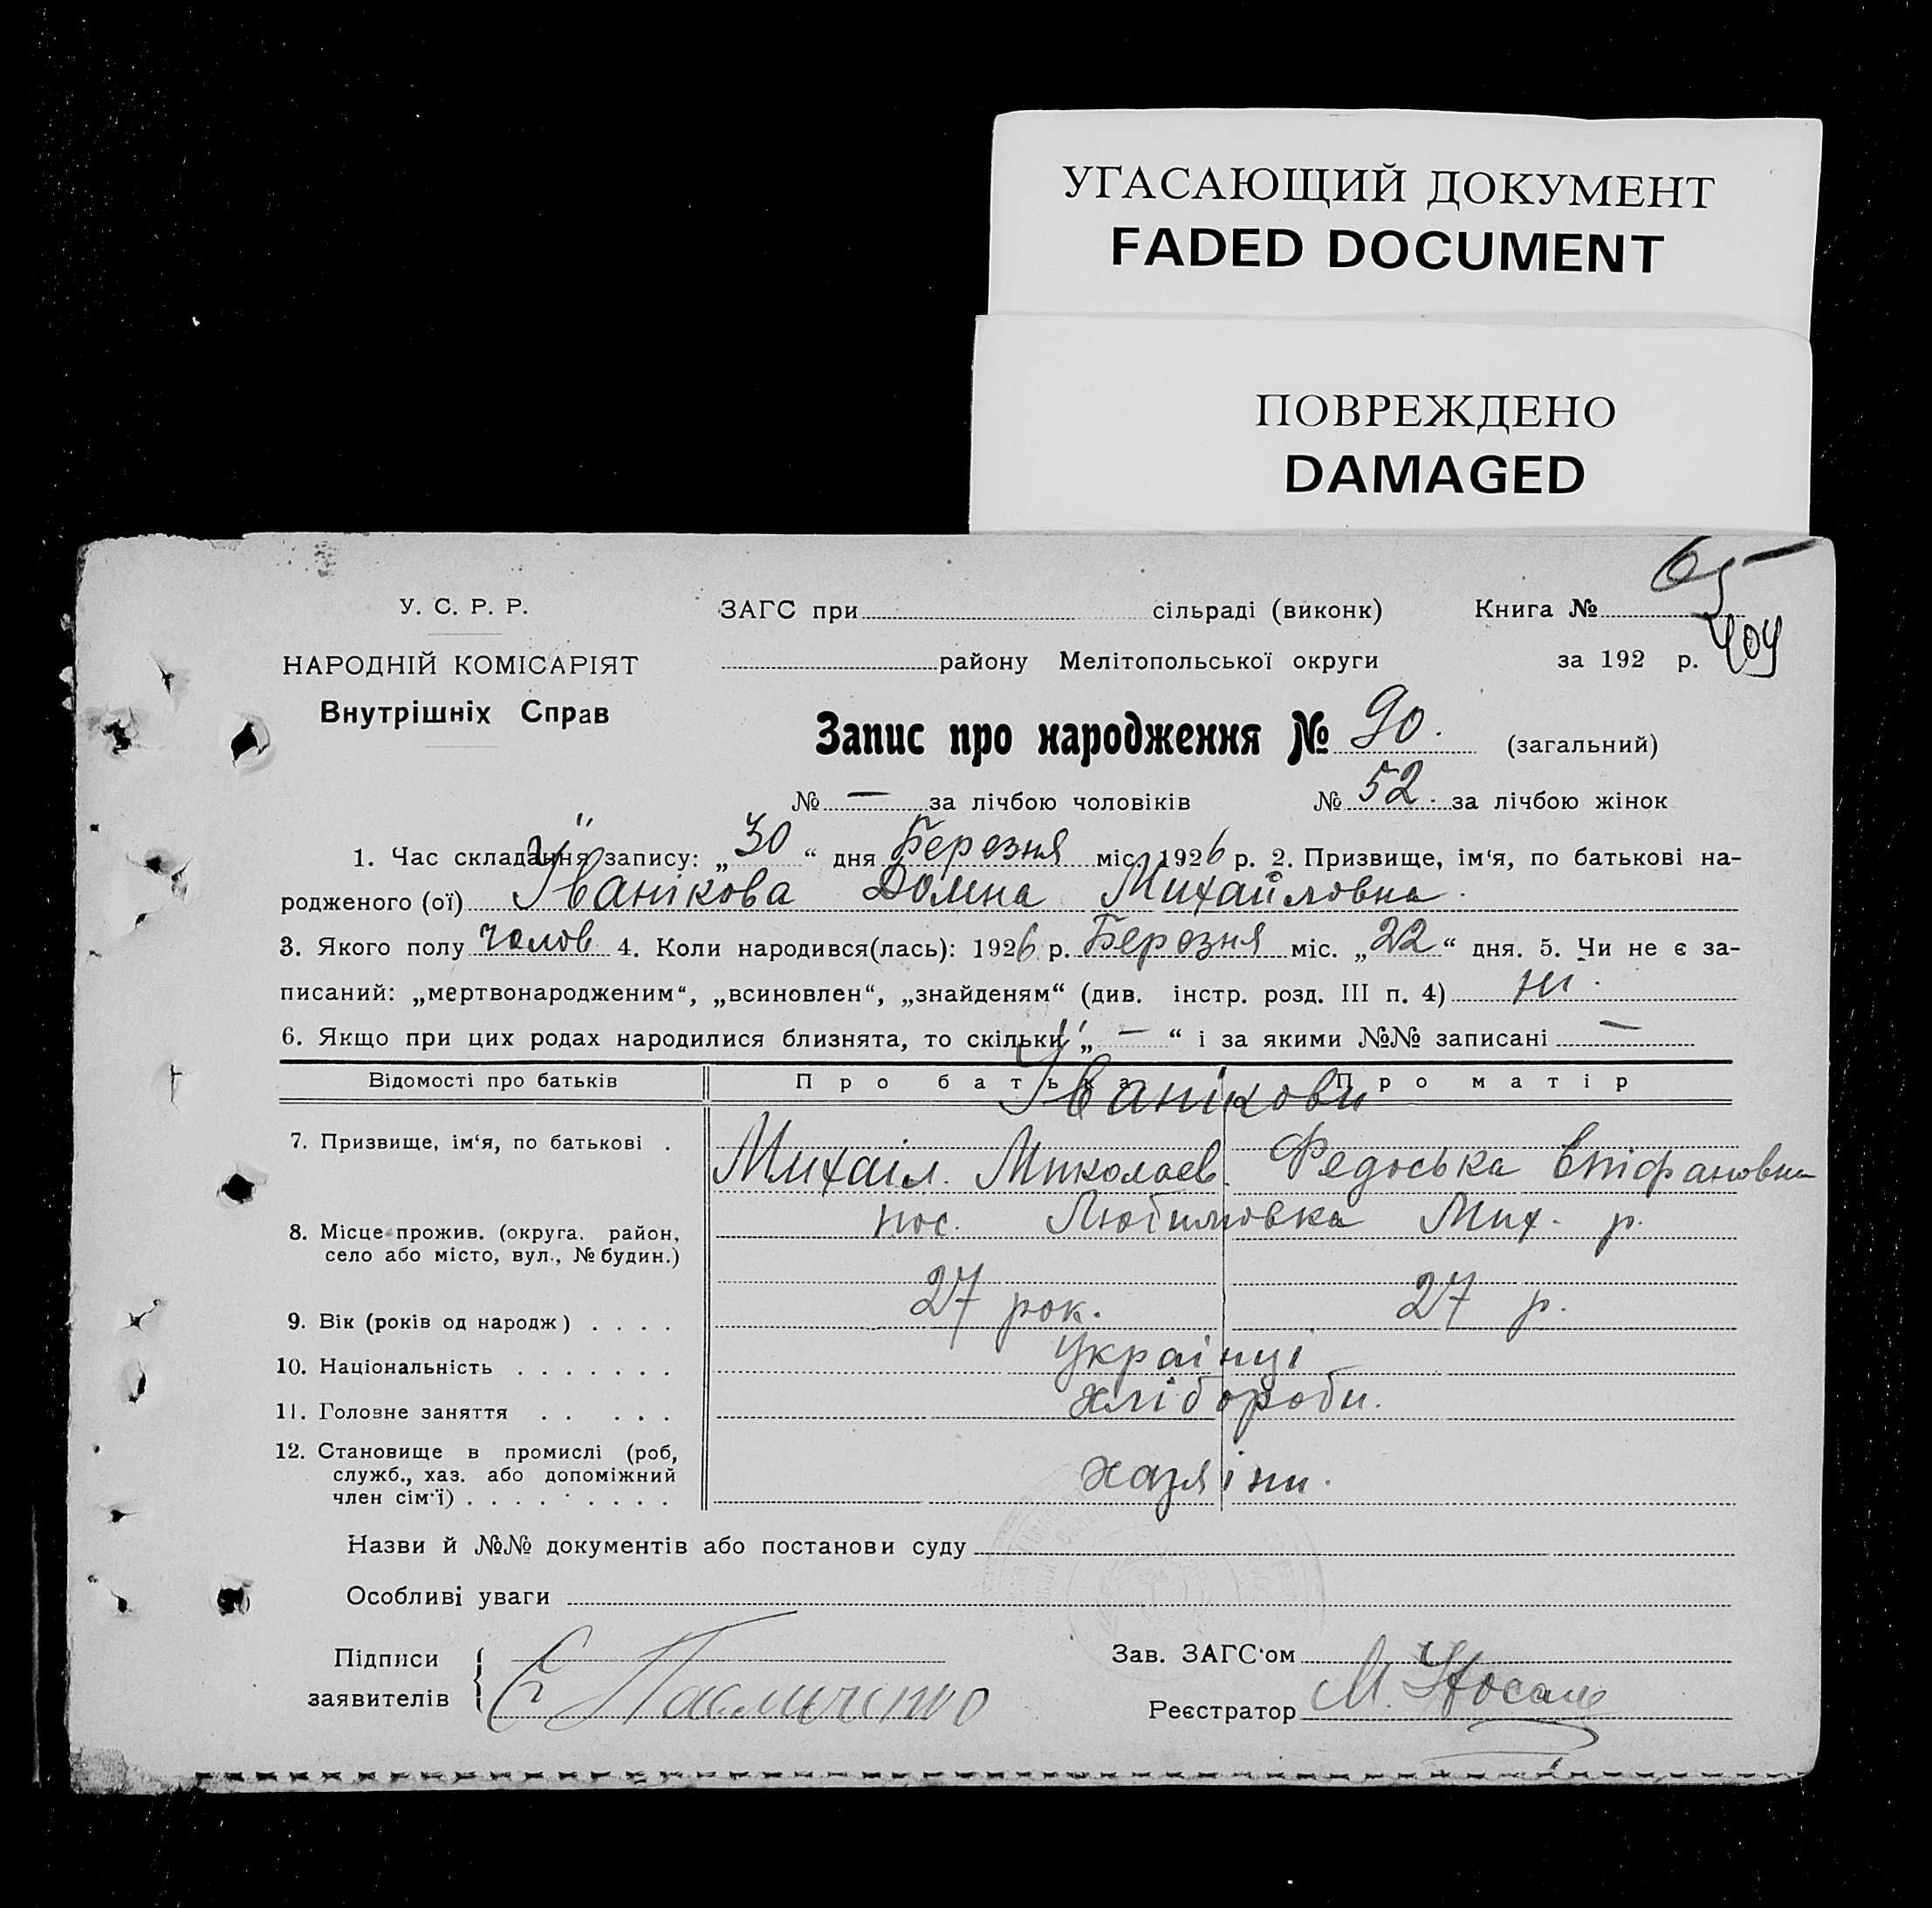 УГАСАЮЩИЙ ДОКУМЕНТ
FADED DOCUMENT
ПОВРЕЖДЕНО
DAMAGED
65
409
У. С. Р. Р.
НАРОДНІЙ КОМІСАРІЯТ
Внутрішніх Справ
ЗАГС при сільраді (виконк) Книга №
району Мелітопольської округи за 192 р.
Запис про народження № 90. (загальний)
№ — за лічбою чоловіків № 52. за лічбою жінок
1. Час складання запису: „30“ дня Березня міс. 1926 р. 2. Призвище, ім‘я, по батькові на-
родженого (ої) Іванікова Домна Михайловна.
3. Якого полу чолов 4. Коли народився(лась): 1926 р. Березня міс. „22“ дня. 5. Чи не є за-
писаний: „мертвонародженим“, „всиновлен“, „знайденям“ (див. інстр. розд. III п. 4) ні.
6. Якщо при цих родах народилися близнята, то скільки „—“ і за якими №№ записані —
Відомості про батьків Про батька Про матір
Іванікови
7. Призвище, ім‘я, по батькові .
Михаіл. Миколаев. Федоська Епіфановна
8. Місце прожив. (округа. район,
село або місто, вул., № будин.)
пос. Любимовка Мих. р.
9. Вік (років од народж) . . . . 27 рок. 27 р.
10. Національність . . . . . . . Українці
11. Головне заняття . . . . . хлібороби.
12. Становище в промислі (роб,
служб., хаз. або допоміжний
член сім‘ї) . . . . . . . . . хазяіни.
Назви й №№ документів або постанови суду
Особливі уваги
Підписи
заявителів
Зав. ЗАГС‘ом
Реєстратор М.